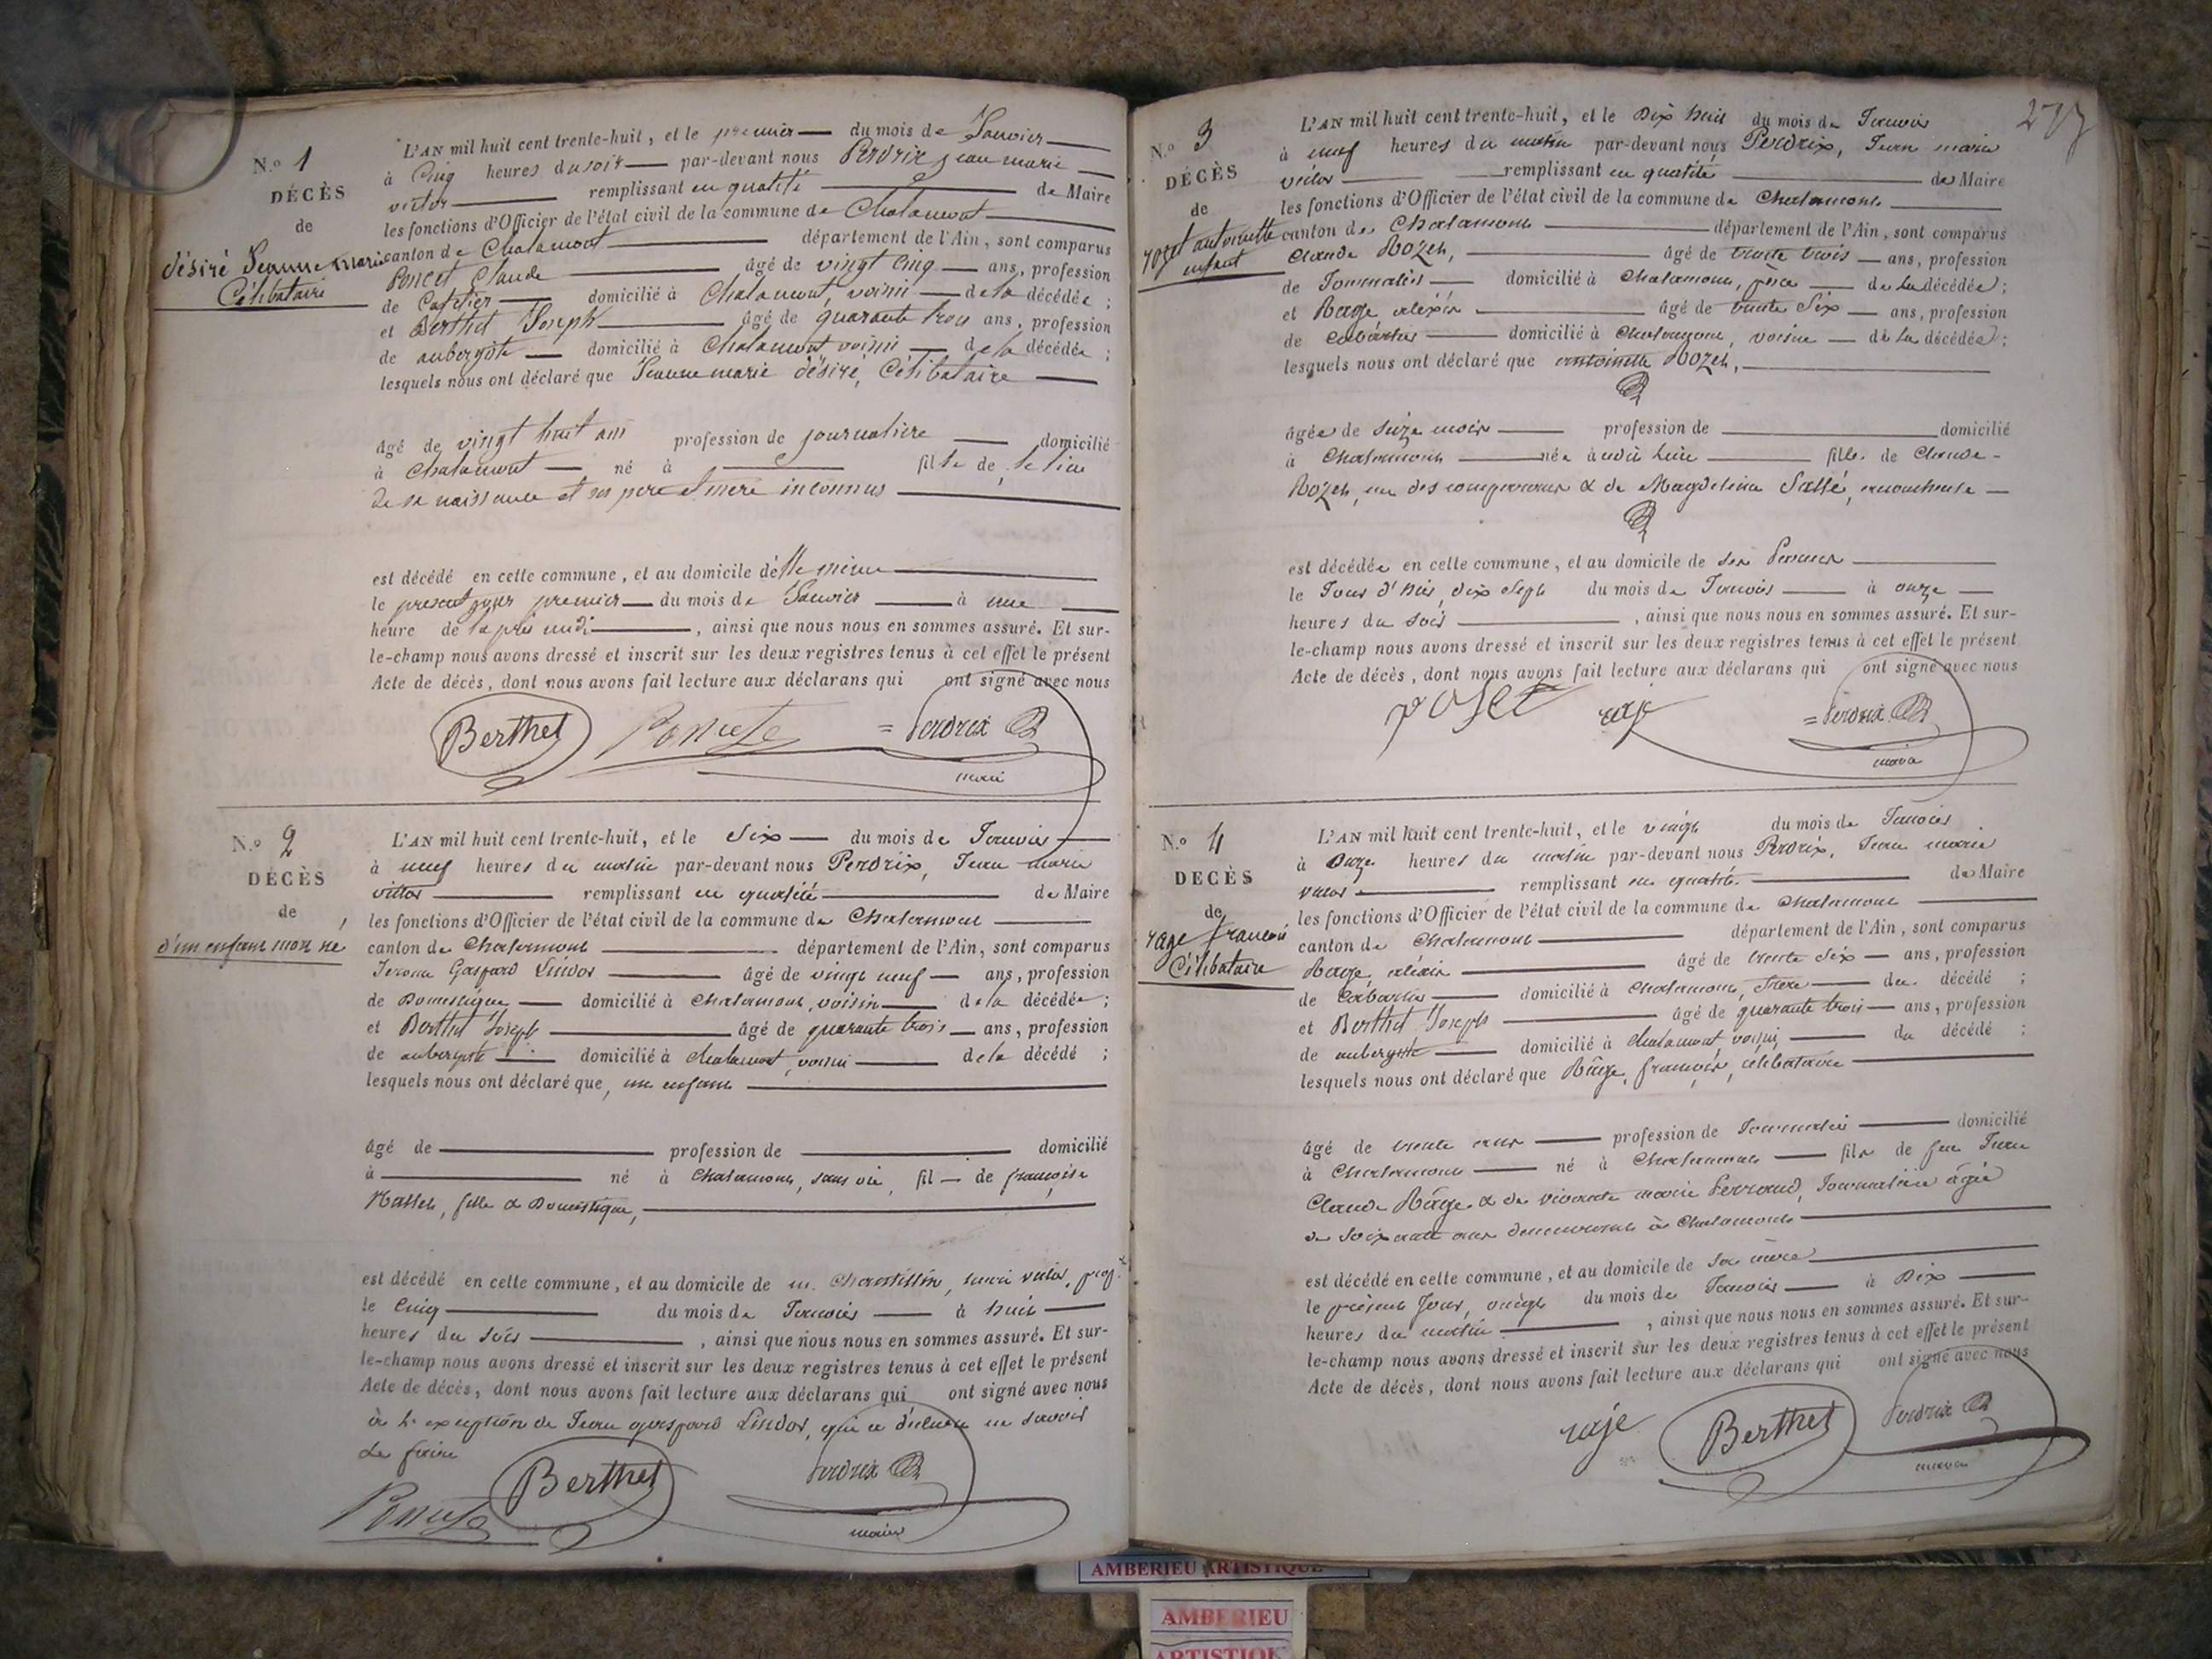 N.º 1
DÉCÈS
de
désiré Jeanne marie
Célibataire
L'AN mil huit cent trente-huit, et le premier du mois de Janvier
à Cinq heures du soir par-devant nous Perdrix jean marie
victor remplissant en qualité de Maire
les fonctions d'Officier de l'état civil de la commune de Chalamont
canton de Chalamont département de l'Ain, sont comparus
Poncet Claude âgé de vingt cinq ans, profession
de Cafetier domicilié à Chalamont, voisin de la décédée ;
et Berthet Joseph âgé de quarante trois ans, profession
de aubergiste domicilié à Chalamont voisin de la décédée ;
lesquels nous ont déclaré que Jeanne marie désiré, Célibataire
âgé de vingt huit ans profession de journalière domicilié
à Chalamont né à fille de, le lieu
de sa naissance et ses père et mère inconnus
est décédé en cette commune, et au domicile d'elle même
le present jour premier du mois de Janvier à une
heure de laprès midi, ainsi que nous nous en sommes assuré. Et sur-
le-champ nous avons dressé et inscrit sur les deux registres tenus à cet effet le présent
Acte de décès, dont nous avons fait lecture aux déclarans qui ont signé avec nous
Berthet Perdrix
N.º 2
DÉCÈS
de
d'un enfant mort né
L'AN mil huit cent trente-huit, et le Six du mois de Janvier
à neuf heures du matin par-devant nous Perdrix, Jean marie
victor remplissant en qualité de Maire
les fonctions d'Officier de l'état civil de la commune de Chalamont
canton de Chalamont département de l'Ain, sont comparus
Gaspard Lindor âgé de vingt neuf ans, profession
de Domestique domicilié à Chalamont, voisin de la décédée ;
et Berthet Joseph âgé de quarante trois ans, profession
de aubergiste domicilié à Chalamont, voisin de la décédé ;
lesquels nous ont déclaré que, un enfant
âgé de profession de domicilié
à né à Chalamont, sans vie, fil de françoise
fille & Domestique,
est décédé en cette commune, et au domicile de m. marie victor,
le Cinq du mois de Janvier à huit
heures du soir, ainsi que nous nous en sommes assuré. Et sur-
le-champ nous avons dressé et inscrit sur les deux registres tenus à cet effet le présent
Acte de décès, dont nous avons fait lecture aux déclarans qui ont signé avec nous
à l'exception de Jean gaspard Lindor, qui a déclaré ne savoir
le faire
Berthet Perdrix
maire
277
N.º 3
DÉCÈS
de
rozet antoinette
enfant
L'AN mil huit cent trente-huit, et le Dix huit du mois de Janvier
à neuf heures du matin par-devant nous Perdrix, Jean marie
victor remplissant en qualité de Maire
les fonctions d'Officier de l'état civil de la commune de Chalamont
canton de Chalamont département de l'Ain, sont comparus
Claude Rozet, âgé de trente trois ans, profession
de Journalier domicilié à Chalamont, père de la décédée ;
et Rage aléxis âgé de trente Six ans, profession
de Cabartier domicilié à Chalamont, voisin de la décédée ;
lesquels nous ont déclaré que antoinette Rozet,
âgée de seize mois profession de domicilié
à Chalamont née audit lieu fille de Claude
Rozet, un des comparants & de Magdeleine Sallé,
est décédée en cette commune, et au domicile de ses Parents
le Jour d'hier, dix Sept du mois de Janvier à onze
heures du soir, ainsi que nous nous en sommes assuré. Et sur-
le-champ nous avons dressé et inscrit sur les deux registres tenus à cet effet le présent
Acte de décès, dont nous avons fait lecture aux déclarans qui ont signé avec nous
rozet raje Perdrix
N.º 4
DÉCÈS
de
rage francois
Célibataire
L'AN mil huit cent trente-huit, et le vingt du mois de Janvier
à Onze heures du matin par-devant nous Perdrix, Jean marie
victor remplissant en qualité de Maire
les fonctions d'Officier de l'état civil de la commune de Chalamont
canton de Chalamont département de l'Ain, sont comparus
Rage, aléxis âgé de trente six ans, profession
de Cabartier domicilié à Chalamont, frère du décédé ;
et Berthet Joseph âgé de quarante trois ans, profession
de aubergiste domicilié à Chalamont voisin, du décédé ;
lesquels nous ont déclaré que Râge, françois, célibataire
âgé de trente ans profession de Journalier domicilié
à Chalamont né à Chalamont fils de feu Jean
Claude Râge & de vivante marie Perraud, Journalière âgée
de soixante ans demeurant à Chalamont
est décédé en cette commune, et au domicile de sa mère
le présent Jour, vingt du mois de Janvier à Dix
heures du matin, ainsi que nous nous en sommes assuré. Et sur-
le-champ nous avons dressé et inscrit sur les deux registres tenus à cet effet le présent
Acte de décès, dont nous avons fait lecture aux déclarans qui ont signé avec nous
raje Berthet Perdrix
AMBERIEU ARTISTIQUE
AMBERIEU